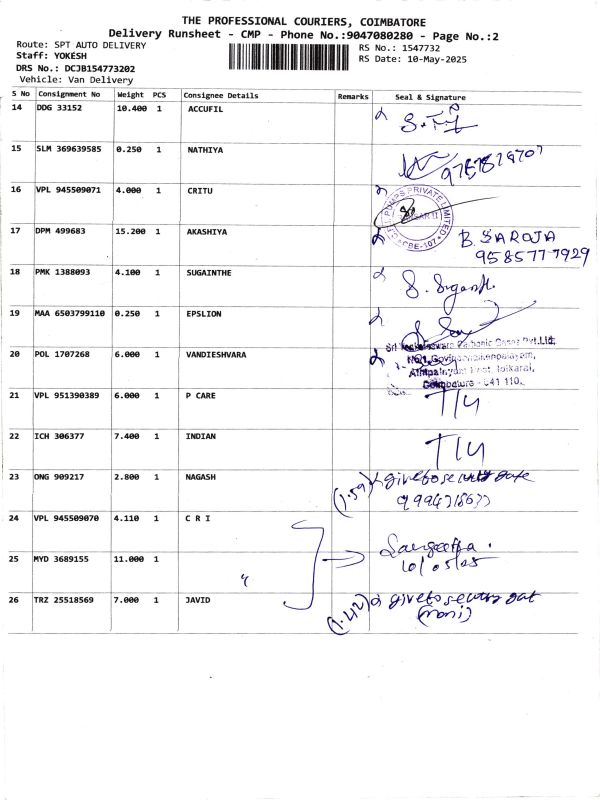 THE PROFESSIONAL COURIERS, COIMBATORE
Delivery Runsheet - CMP - Phone No.:9047080280 - Page No.:2
Route: SPT AUTO DELIVERY
Staff: YOKESH
DRS No.: DCJB154773202
Vehicle: Van Delivery
RS No.: 1547732
RS Date: 10-May-2025
S No Consignment No Weight PCS Consignee Details Remarks Seal & Signature
14 DDG 33152 10.400 1 ACCUFIL
15 SLM 369639585 0.250 1 NATHIYA
16 VPL 945509071 4.000 1 CRITU
PUMPS PRIVATE LIMITED
CBE-107
17 DPM 499683 15.200 1 AKASHIYA B. SAROJA
9585777929
18 PMK 1388093 4.100 1 SUGAINTHE
19 MAA 6503799110 0.250 1 EPSLION
20 POL 1707268 6.000 1 VANDIESHVARA
Coimbatore - 641 110.
21 VPL 951390389 6.000 1 P CARE T/4
22 ICH 306377 7.400 1 INDIAN T/4
23 ONG 909217 2.800 1 NAGASH (1.59) give to security gate
24 VPL 945509070 4.110 1 C R I
Sangeetha.
10/05/25
25 MYD 3689155 11.000 1 "
26 TRZ 25518569 7.000 1 JAVID (1.42) give to security gat
(mani)